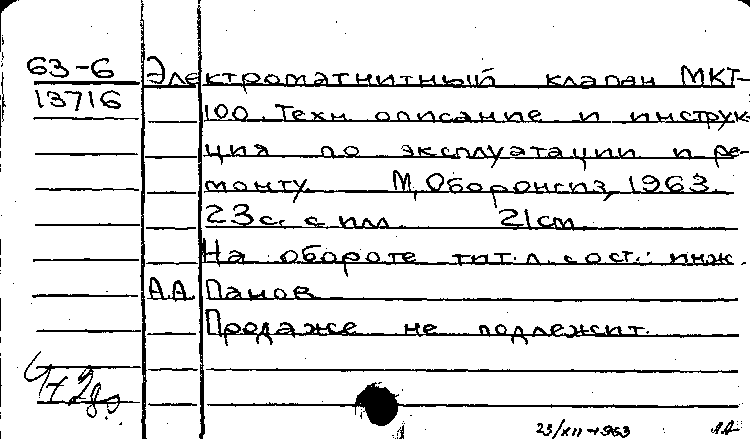 63-6 Электромагнитный клапан МКТ-
13716 100. Техн. описание и инструк-
ция по эксплуатации и ре-
монту. М, Оборонгиз, 1963.
23 с. с илл. 21 см.
На обороте тит. л. сост.: инж.
А.А. Панов
Продаже не подлежит.
23/XII-1963